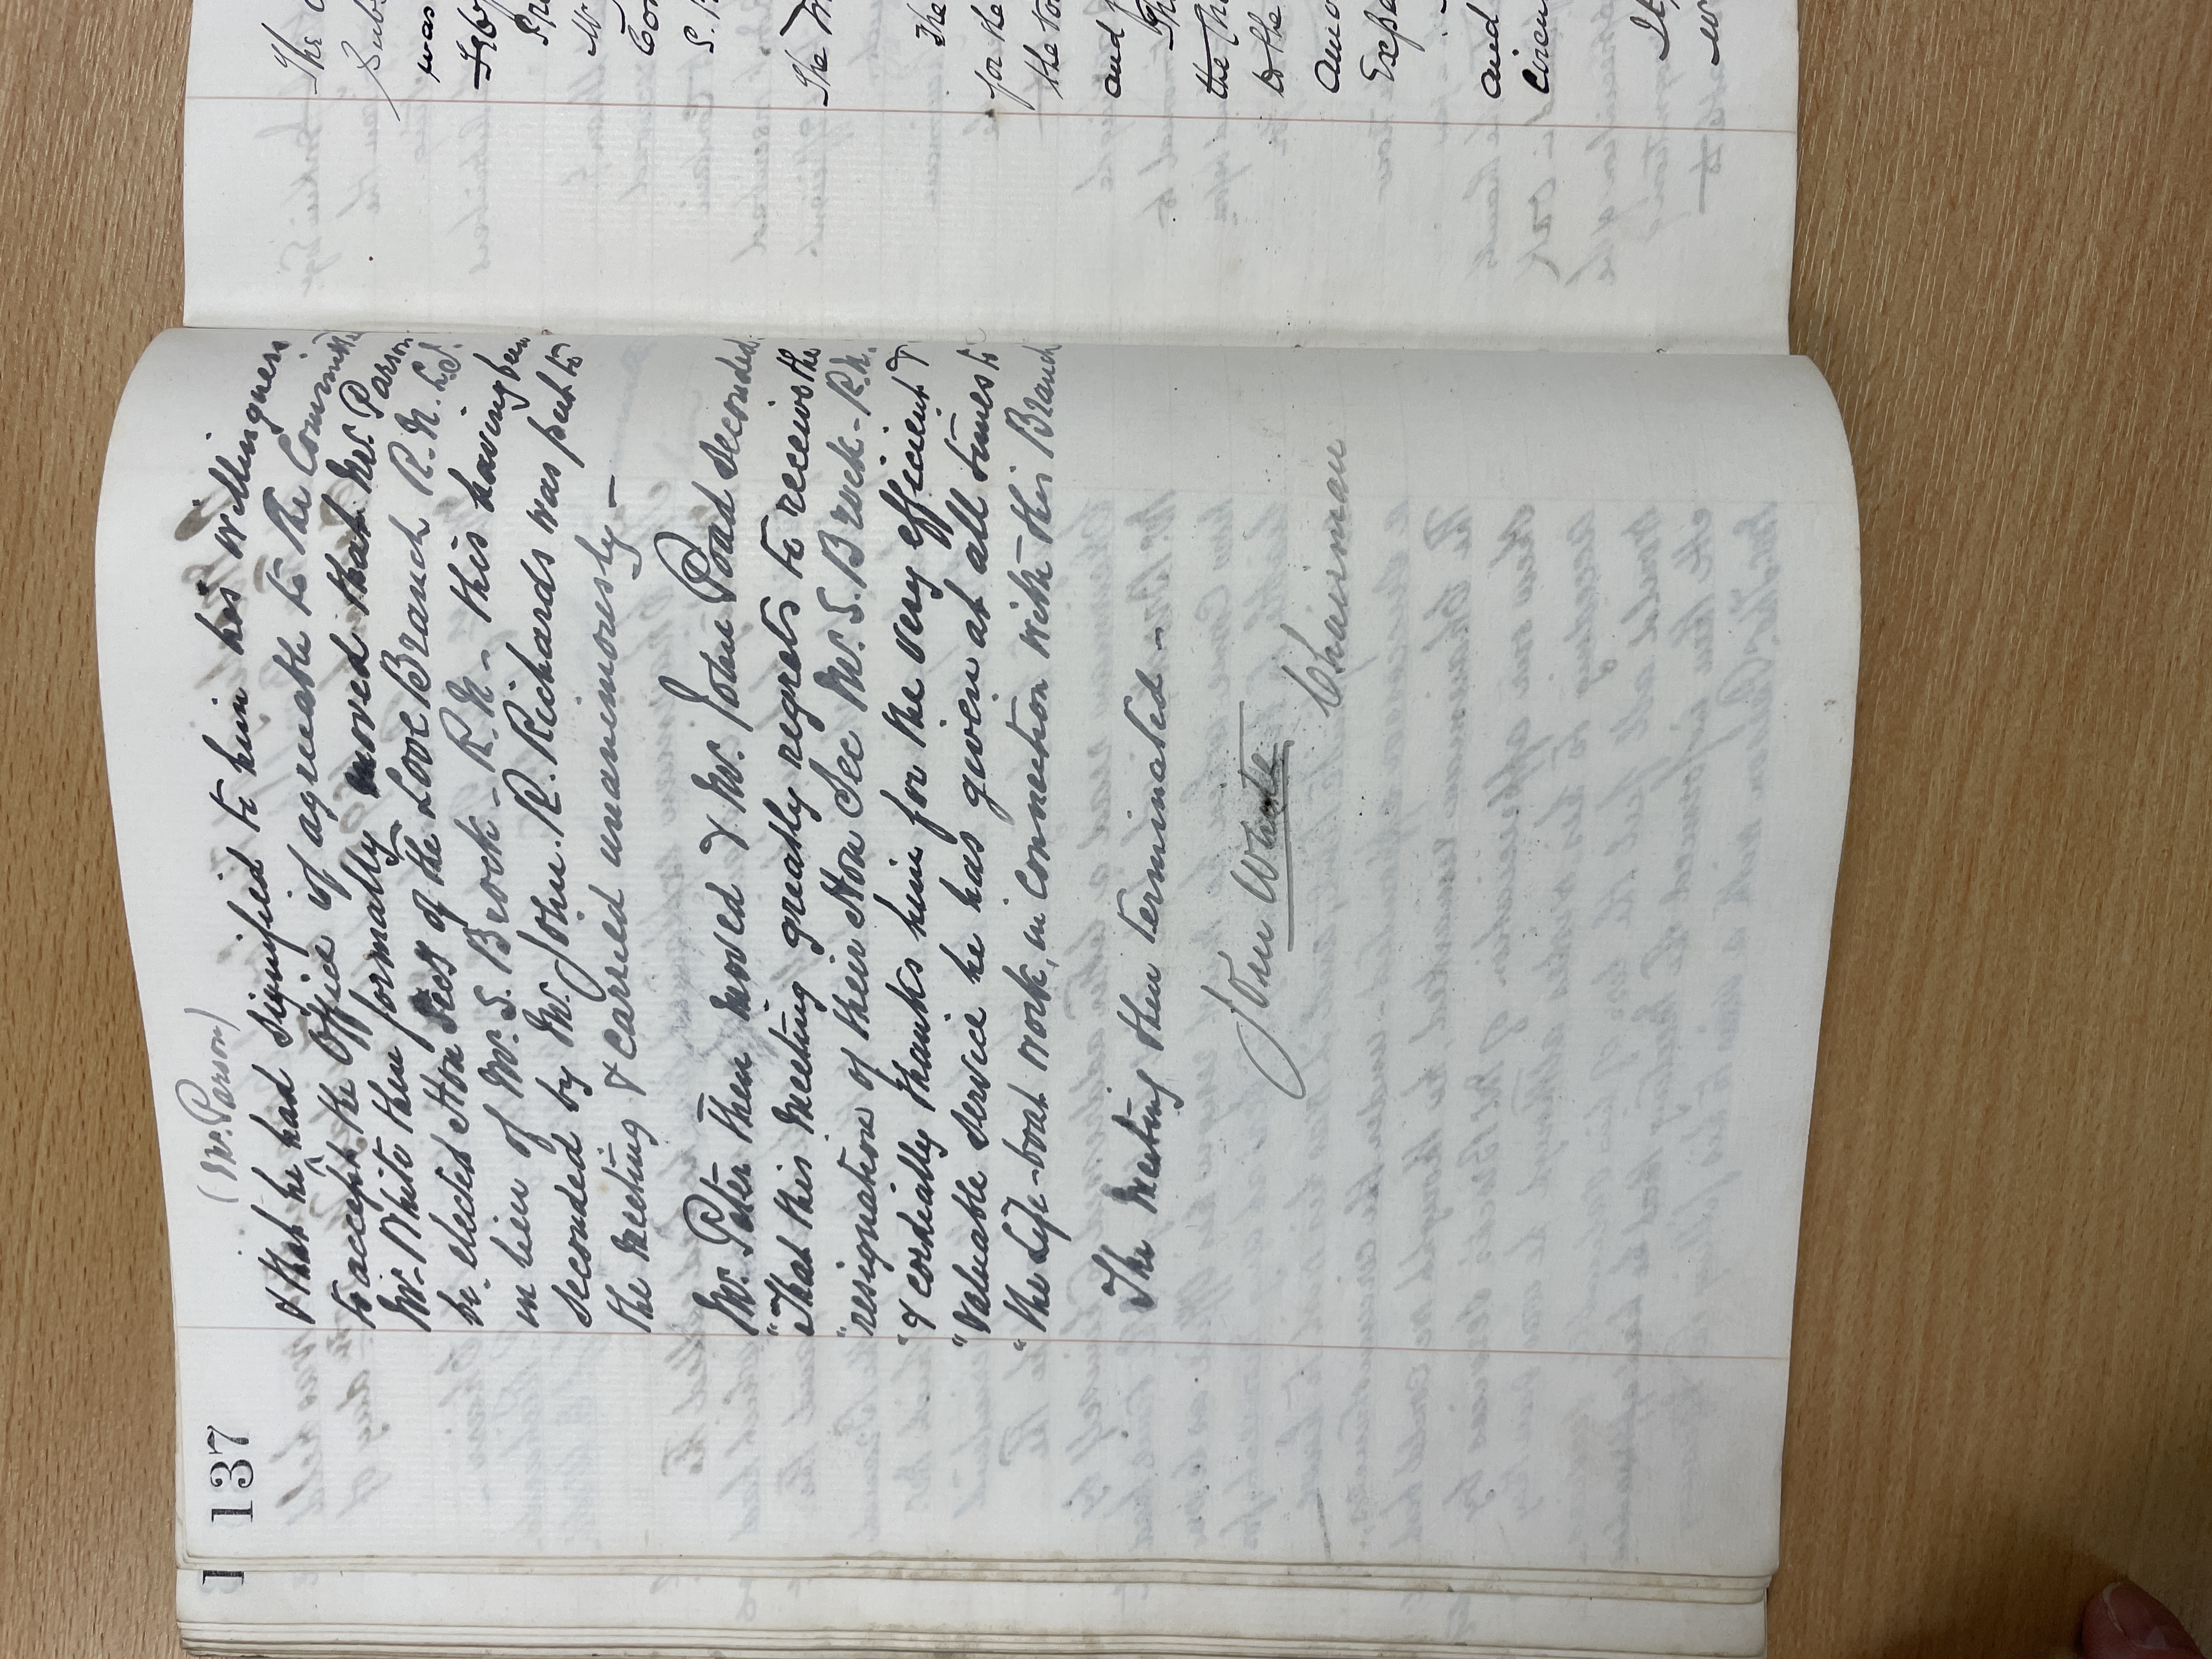 137
(Mr. Parson)
& that he ^ had signified to him his willingness
to accept the Office if agreeable to the Committee
Mr. White then formally moved that Mr. Parson
be elected Hon Secy of the Looe Branch R.N.L.I.
in lieu of Mr. S. Brock - R.N. - this having been
seconded by Mr. John. R. Richards was put to
the Meeting & carried unanimously -
Mr. Peter then moved & Mr. John Poad seconded
"That this Meeting greatly regrets to receive the
"resignation of their Hon Sec Mr. S. Brock - R.N.
"& cordially thanks him for the very efficient &
"valuable service he has given at all times to
"the Life-boat work, in Connection with this Branch
The Meeting then terminated -
John White
Chairman
The
Subs
was
Mr
Com
The
The
for the
the
and
the
to the
Amo
Expe
and
Circu